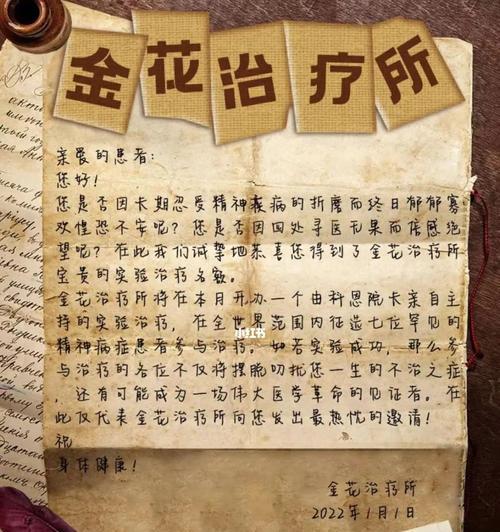 金花治疗所
亲爱的患者:
您好!
您是否因长期忍受精神疾病的折磨而终日郁郁寡
欢惶恐不安呢?您是否因四处寻医无果而倍感绝
望呢?在此我们诚挚地恭喜您得到了金花治疗所
宝贵的实验治疗名额。
金花治疗所将在本月开办一个由科恩院长亲自主
持的实验治疗,在全世界范围内征选七位罕见的
精神病症患者参与治疗。如若实验成功,那么参
与治疗的各位不仅将摆脱叨扰您一生的不治之症
,还有可能成为一场伟大医学革命的见证者。在
此仅代表金花治疗所向您发出最热忱的邀请!
祝
身体健康!
金花治疗所
2022年1月1日
小红书